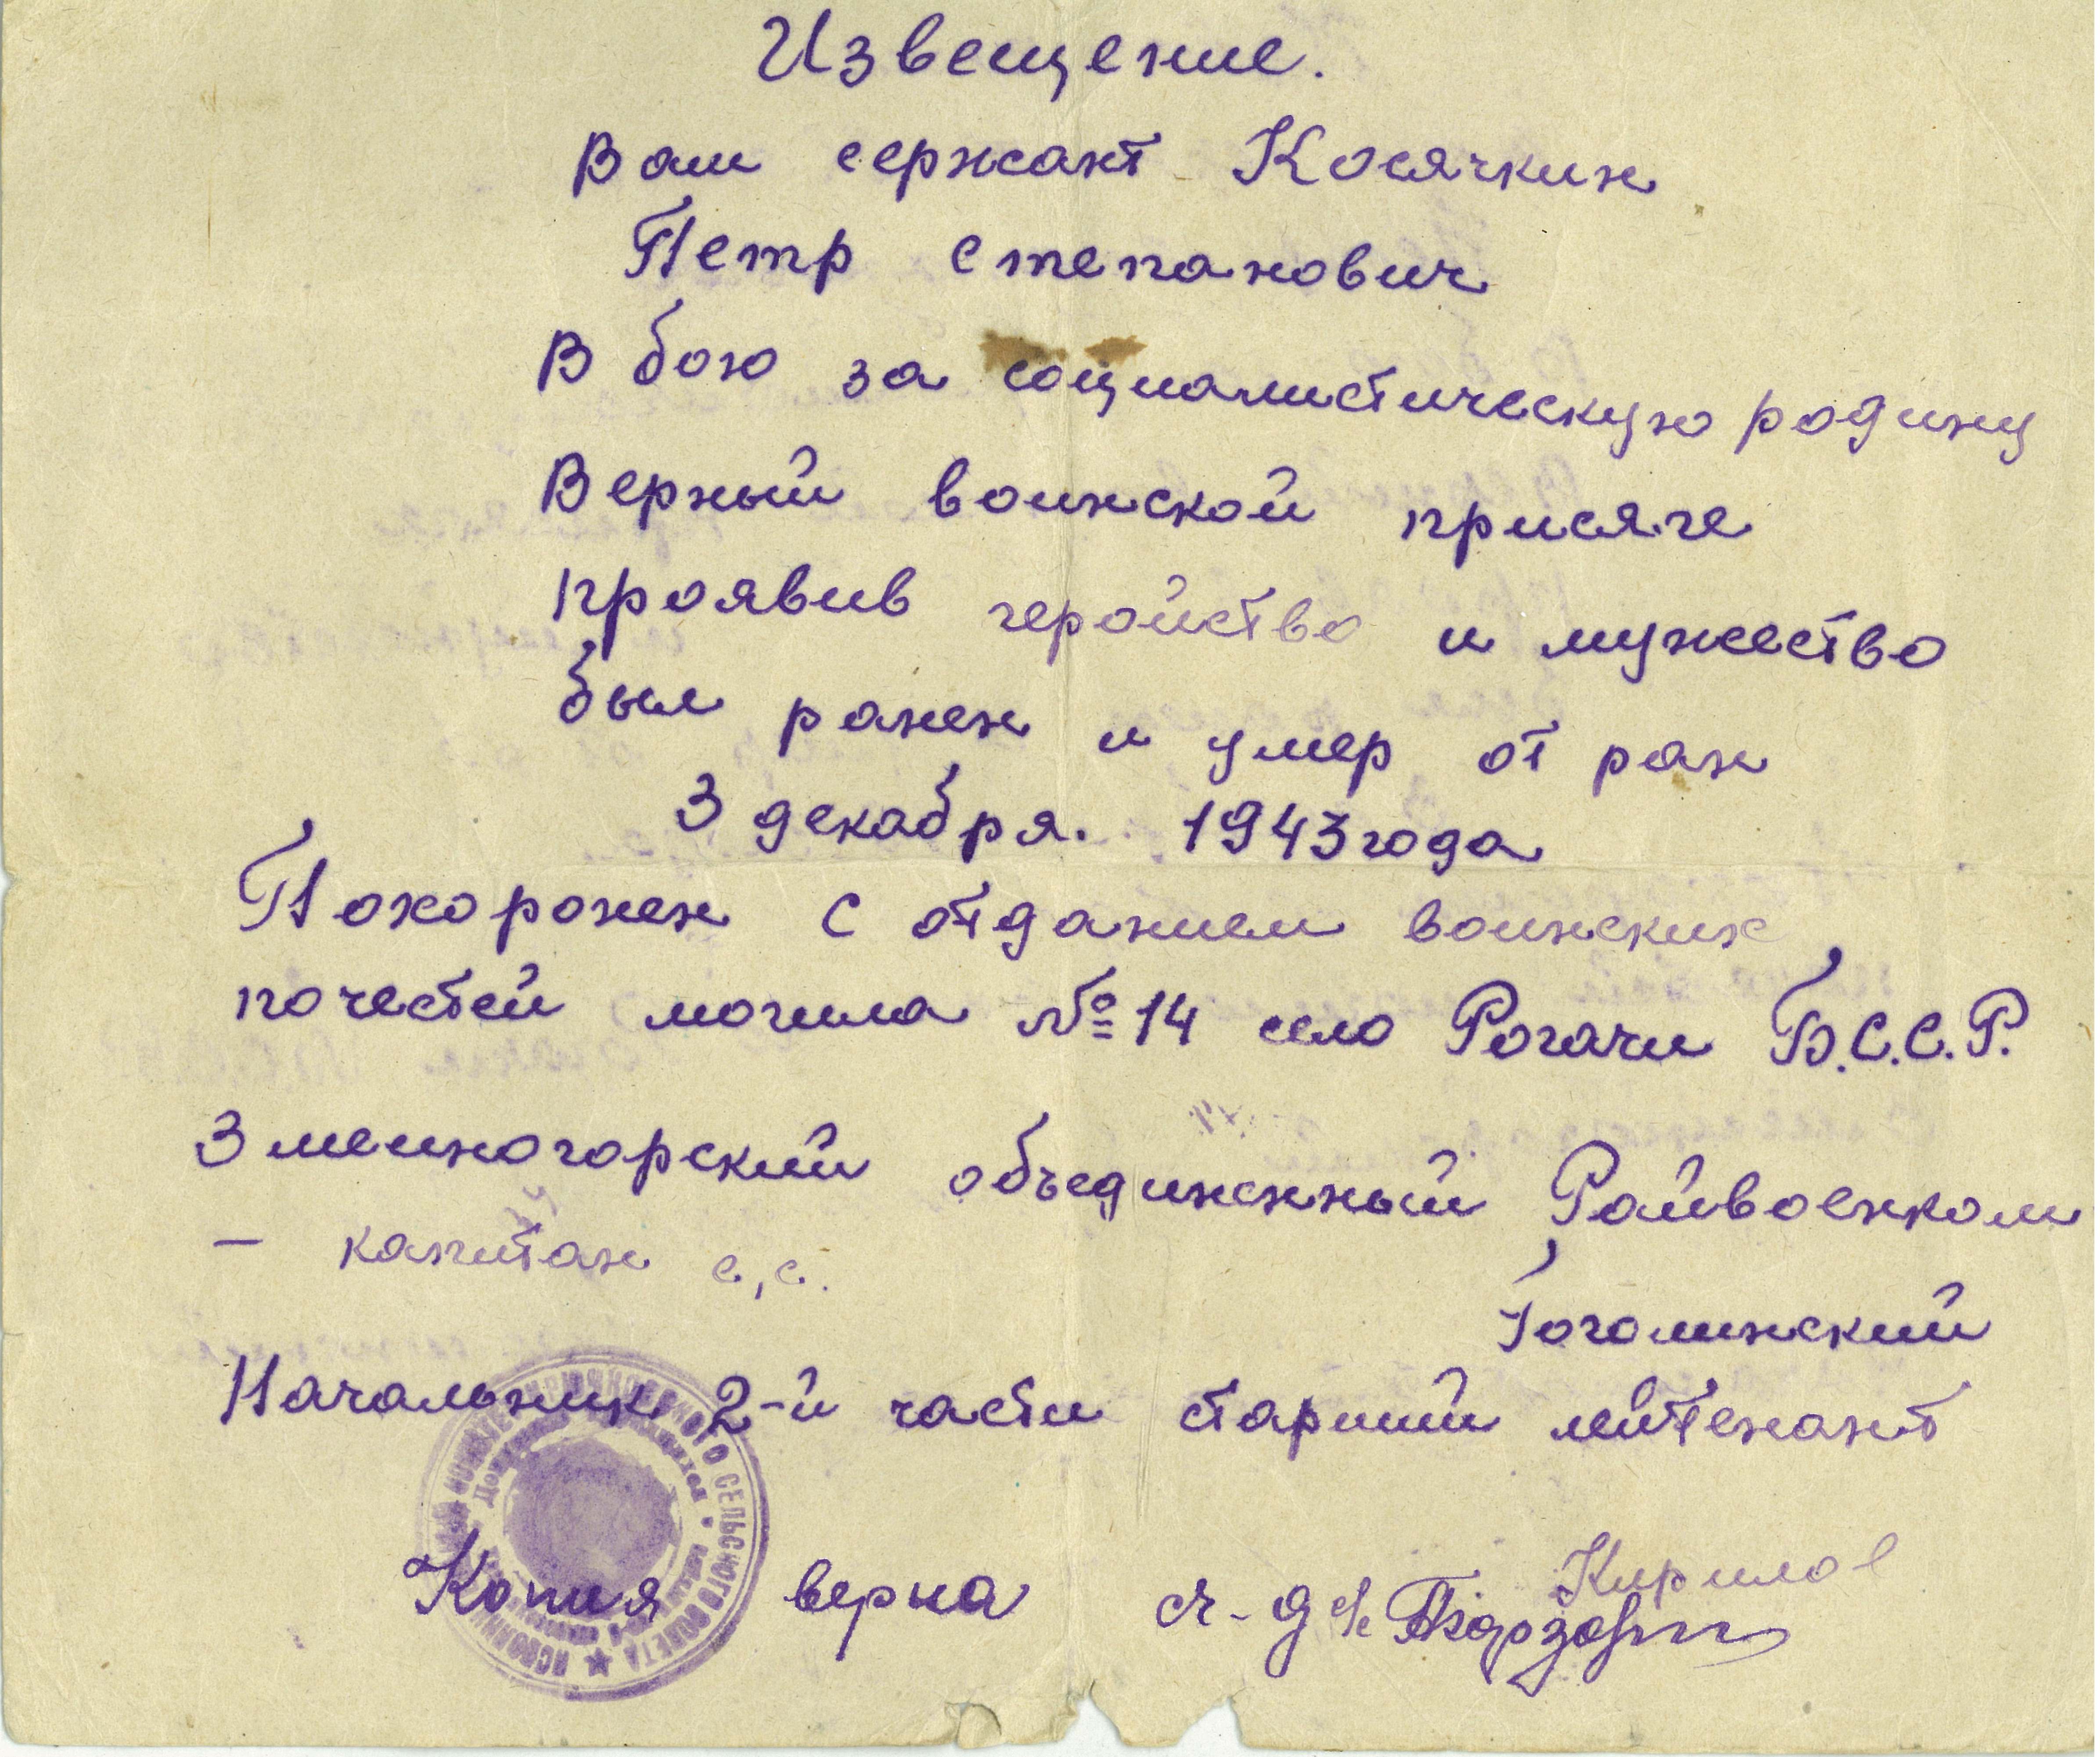 Извещение.
Ваш сержант Косячкин
Петр Степанович
В бою за социалистическую родину
Верный воинской присяге
проявив геройство и мужество
был ранен и умер от ран
3 декабря. 1943 года
Похоронен с отданием воинских
почестей могила № 14 село Рогачи Б.С.С.Р.
Змеиногорский объединенный Райвоенком
– капитан с,с.
Гоголинский
Начальник 2-й части старший лейтенант
Кирилов
Копия верна
СЕЛЬСКОГО СОВЕТА